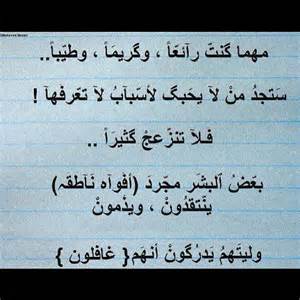 مهما گنتَ رآئعَاً ، وگريمَاً ، وطيّباً..
ستجدُ منْ لآ يحَبگ لأسبآبُ لآ تعَرفهآ !
فـلآ تنزّعجُ گثيرَاً ..
بعَضُ آلبشَر مجَردَ (أفوآه نَآطقـہ)
ينٌتقدُونْ ، ويذْمونْ
وليتهَمُ يدَرُگونْ آنهَم { غافلون }